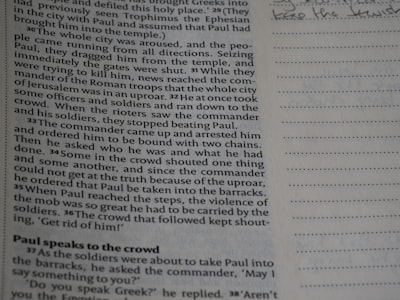 has brought Greeks into
ple and defiled this holy place.' ²⁹(They
had previously seen Trophimus the Ephesian
in the city with Paul and assumed that Paul had
brought him into the temple.)
³⁰The whole city was aroused, and the peo-
ple came running from all directions. Seizing
Paul, they dragged him from the temple, and
immediately the gates were shut. ³¹While they
were trying to kill him, news reached the com-
mander of the Roman troops that the whole city
of Jerusalem was in an uproar. ³²He at once took
some officers and soldiers and ran down to the
crowd. When the rioters saw the commander
and his soldiers, they stopped beating Paul.
³³The commander came up and arrested him
and ordered him to be bound with two chains.
Then he asked who he was and what he had
done. ³⁴Some in the crowd shouted one thing
and some another, and since the commander
could not get at the truth because of the uproar,
he ordered that Paul be taken into the barracks.
³⁵When Paul reached the steps, the violence of
the mob was so great he had to be carried by the
soldiers. ³⁶The crowd that followed kept shout-
ing, 'Get rid of him!'
Paul speaks to the crowd
³⁷As the soldiers were about to take Paul into
the barracks, he asked the commander, 'May I
say something to you?'
'Do you speak Greek?' he replied. ³⁸'Aren't
you the Egyptian
keep the